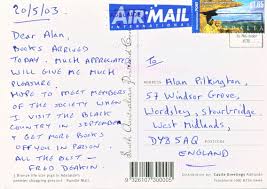 20/5/03.
AIR MAIL
INTERNATIONAL
$1.65
Dear Alan,
BOOKS ARRIVED
TODAY. MUCH APPRECIATED
WILL GIVE ME MUCH
PLEASURE.
HOPE TO MEET MEMBERS
OF THE SOCIETY WHEN
I VISIT THE BLACK
COUNTRY IN SEPTEMBER
& GET MORE BOOKS
OFF YOU IN PERSON.
ALL THE BEST —
FRED DEAKIN
TO
ADDRESS
Alan Pilkington,
57 Windsor Grove,
Wordsley, Stourbridge
West Midlands,
DY8 5AQ
ENGLAND
POSTCODE